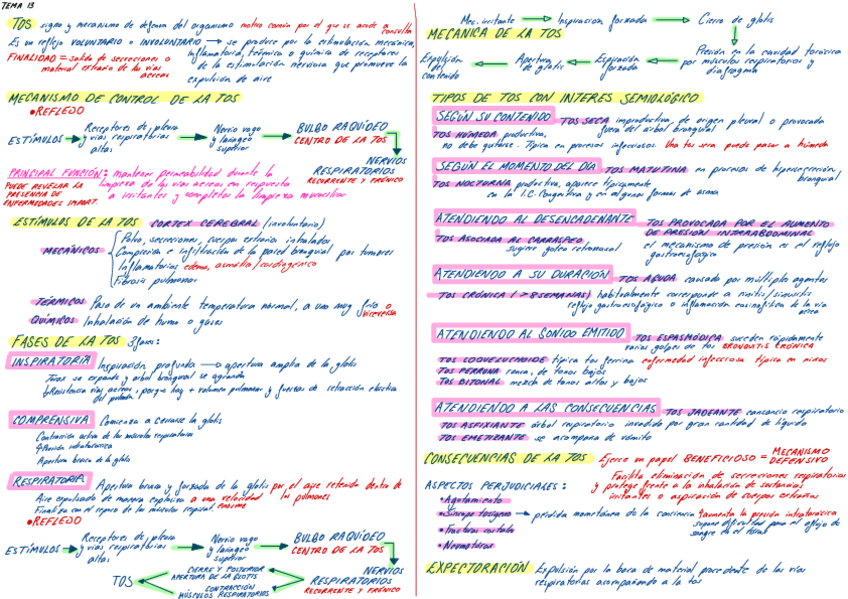 TEMA 13
TOS signo y mecanismo de defensa del organismo motivo común por el que se acude a consulta
Es un reflejo VOLUNTARIO o INVOLUNTARIO → se produce por la estimulación mecánica,
inflamatoria, térmica o química de receptores
FINALIDAD = salida de secreciones o
material extraño de las vías
aéreas
de la estimulación nerviosa que promueve la
expulsión de aire
MECANISMO DE CONTROL DE LA TOS
•REFLEJO
ESTÍMULOS → Receptores de pleura y vías respiratorias altas → Nervio vago y laríngeo superior → BULBO RAQUÍDEO
CENTRO DE LA TOS
NERVIOS
RESPIRATORIOS
RECURRENTE Y FRÉNICO
PRINCIPAL FUNCIÓN: mantener permeabilidad durante la
limpieza de las vías aéreas en respuesta
a irritantes y completar la limpieza mucociliar
PUEDE REVELAR LA
PRESENCIA DE
ENFERMEDADES IMPORT.
ESTÍMULOS DE LA TOS CORTEX CEREBRAL (involuntario)
MECÁNICOS
Polvo, secreciones, cuerpos extraños inhalados
Compresión e infiltración de la pared bronquial por tumores
Inflamatorios edema, asmático/cardiogénico
Fibrosis pulmonar
TÉRMICOS Paso de un ambiente temperatura normal, a uno muy frío o
viceversa
QUÍMICOS Inhalación de humo o gases
FASES DE LA TOS 3 fases:
INSPIRATORIA Inspiración profunda → apertura amplia de la glotis
Tórax se expande y árbol bronquial se agranda
↓Resistencia vías aéreas, porque hay + volumen pulmonar y fuerzas de retracción elástica
del pulmón
COMPRENSIVA Comienza a cerrarse la glotis
Contracción activa de los músculos respiratorios
↑Presión intratorácica
Apertura brusca de la glotis
RESPIRATORIA Apertura brusca y forzada de la glotis por el aire retenido dentro de
los pulmones
Aire expulsado de manera explosiva a una velocidad
enorme
Finaliza con el reposo de los músculos respirat.
•REFLEJO
ESTÍMULOS → Receptores de pleura y vías respiratorias altas → Nervio vago y laríngeo superior → BULBO RAQUÍDEO
CENTRO DE LA TOS
NERVIOS
RESPIRATORIOS
RECURRENTE Y FRÉNICO
CIERRE Y POSTERIOR
APERTURA DE LA GLOTIS
TOS
CONTRACCIÓN
MÚSCULOS RESPIRATORIOS
Mec. irritante → Inspiración forzada → Cierre de glotis
MECÁNICA DE LA TOS
Expulsión del contenido ← Apertura de glotis ← Espiración forzada ← Presión en la cavidad torácica
por músculos respiratorios y
diafragma
TIPOS DE TOS CON INTERÉS SEMIOLÓGICO
SEGÚN SU CONTENIDO TOS SECA improductiva, de origen pleural o provocada
fuera del árbol bronquial
TOS HÚMEDA productiva,
no debe quitarse. Típica en procesos infecciosos. Una tos seca puede pasar a húmeda
SEGÚN EL MOMENTO DEL DÍA TOS MATUTINA en procesos de hipersecreción
bronquial
TOS NOCTURNA productiva, aparece típicamente
en la I.C. Congestiva y en algunas formas de asma
ATENDIENDO AL DESENCADENANTE TOS PROVOCADA POR EL AUMENTO
DE PRESIÓN INTRAABDOMINAL
TOS ASOCIADA AL CARRASPEO
sugiere goteo retronasal
el mecanismo de presión es el reflujo
gastroesofágico
ATENDIENDO A SU DURACIÓN TOS AGUDA causado por múltiples agentes
TOS CRÓNICA (>8 SEMANAS) habitualmente corresponde a rinitis/sinusitis
reflujo gastroesofágico o inflamación eosinofílica de la vía
aérea
ATENDIENDO AL SONIDO EMITIDO TOS ESPASMÓDICA suceden rápidamente
varios golpes de tos BRONQUITIS CRÓNICA
TOS COQUELUCHOIDE típica tos ferina enfermedad infecciosa típica en niños
TOS PERRUNA ronca, de tonos bajos
TOS BITONAL mezcla de tonos altos y bajos
ATENDIENDO A LAS CONSECUENCIAS TOS JADEANTE cansancio respiratorio
TOS ASFIXIANTE árbol respiratorio invadido por gran cantidad de líquido
TOS EMETIZANTE se acompaña de vómito
CONSECUENCIAS DE LA TOS Ejerce un papel BENEFICIOSO = MECANISMO
DEFENSIVO
Facilita eliminación de secreciones respiratorias
y protege frente a la inhalación de sustancias
irritantes o aspiración de cuerpos extraños
ASPECTOS PERJUDICIALES:
•Agotamiento
•Síncope tusígeno → pérdida momentánea de la conciencia ↑aumenta la presión intratorácica
supone dificultad para el reflujo de
sangre en el tórax
•Fractura costal
•Neumotórax
EXPECTORACIÓN Expulsión por la boca de material procedente de las vías
respiratorias acompañando a la tos